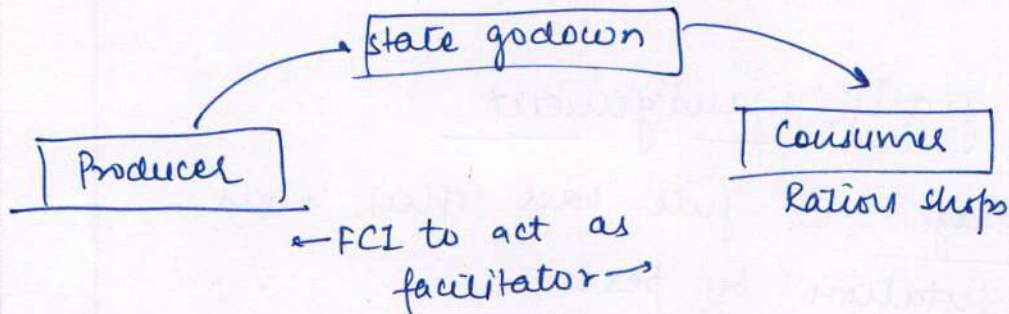 state godown
Producer
Consumer
Ration shops
←FCI to act as
facilitator→